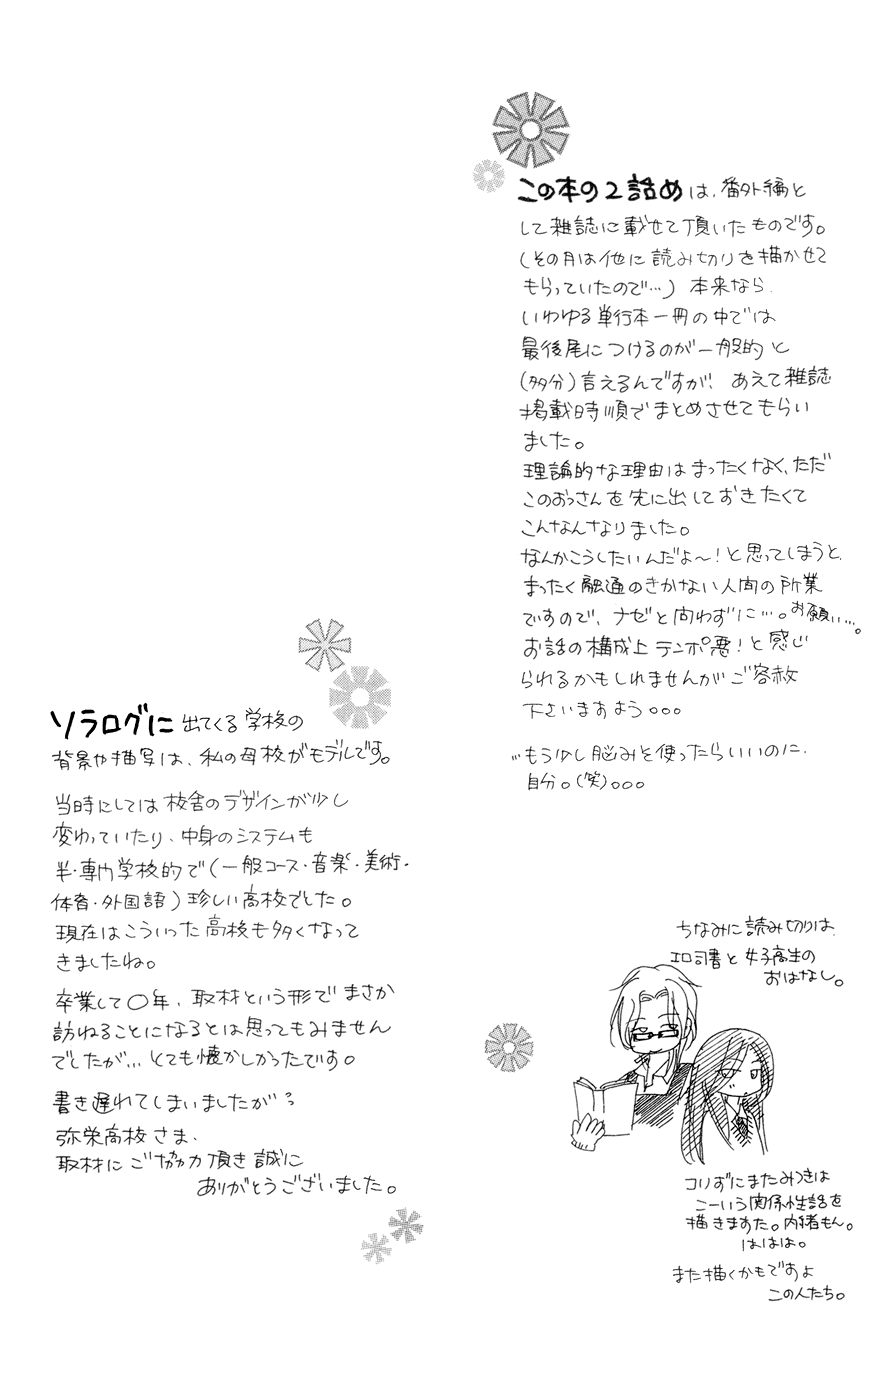 この本の2話めは、番外編と
して雑誌に載せて頂いたものです。
(その月は他に読み切りを描かせて
もらっていたので…) 本来なら、
いわゆる単行本一冊の中では
最後尾につけるのが一般的と
(多分)言えるんですが、あえて雑誌
掲載時順でまとめさせてもらい
ました。
理論的な理由はまったくなく、ただ
このおっさんを先に出しておきたくて
こんなんなりました。
なんかこうしたいんだよ〜!と思ってしまうと、
まったく融通のきかない人間の所業
ですので、ナゼと問わずに…。お願い…。
お話の構成上テンポ悪!と感じ
られるかもしれませんがご容赦
下さいますよう。。。
…もう少し脳みを使ったらいいのに、
自分。(笑)。。。
ちなみに読み切りは、
エロ司書と女子高生の
おはなし。
コリずにまたみつきは
こーいう関係性話を
描きますた。内緒もん。
ははは。
また描くかもですよ
この人たち。
ソラログに出てくる学校の
背景や描写は、私の母校がモデルです。
当時にしては校舎のデザインが少し
変わっていたり、中身のシステムも
半・専門学校的で(一般コース・音楽・美術・
体育・外国語)珍しい高校でした。
現在はこういった高校も多くなって
きましたね。
卒業して〇年、取材という形でまさか
訪ねることになるとは思ってもみません
でしたが…とても懐かしかったです。
書き遅れてしまいましたが
弥栄高校さま、
取材にご協力頂き誠に
ありがとうございました。